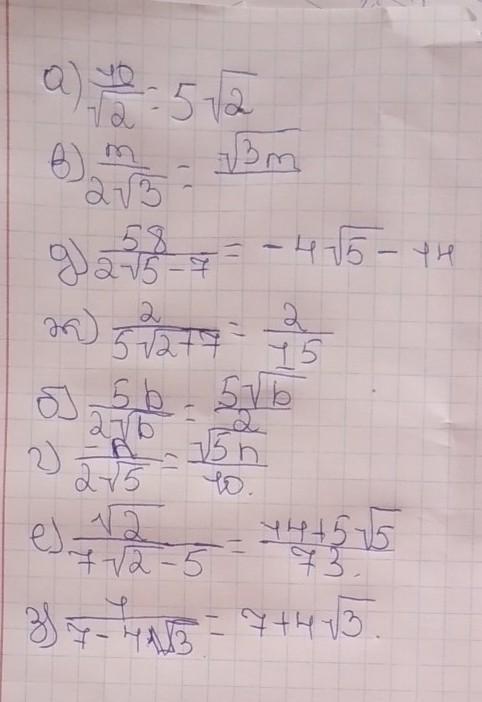 а) 10/√2 = 5√2
в) m/2√3 = √3m/
д) 58/2√5-7 = -4√5-14
ж) 2/5√2+7 = 2/15
б) 5b/2√b = 5√b/2
г) n/2√5 = √5n/10.
е) √2/7√2-5 = 14+5√5/73.
з) 1/7-4√3 = 7+4√3.